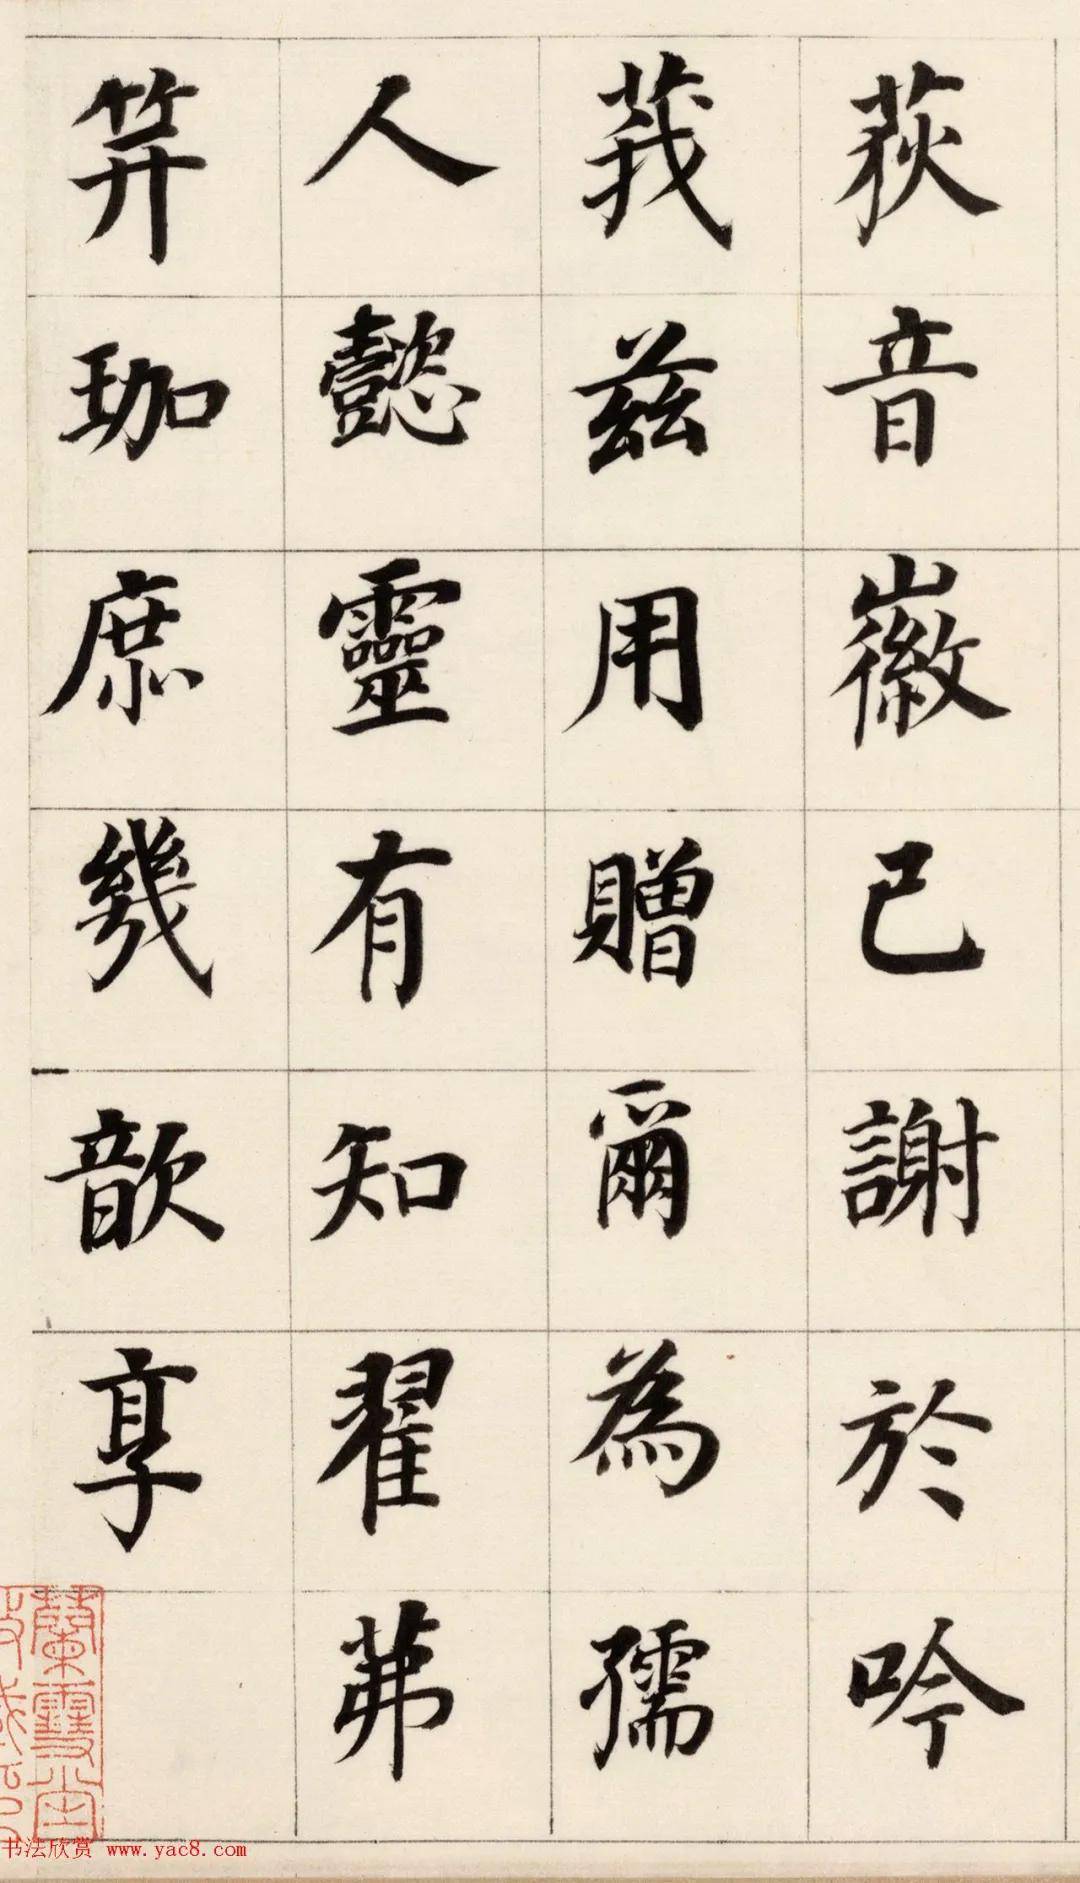 荻音徽已謝於吟
莪兹用贈爾為孺
人懿靈有知翟茀
笄珈庶幾歆享
蘭雪堂
书法欣赏 www.yac8.com